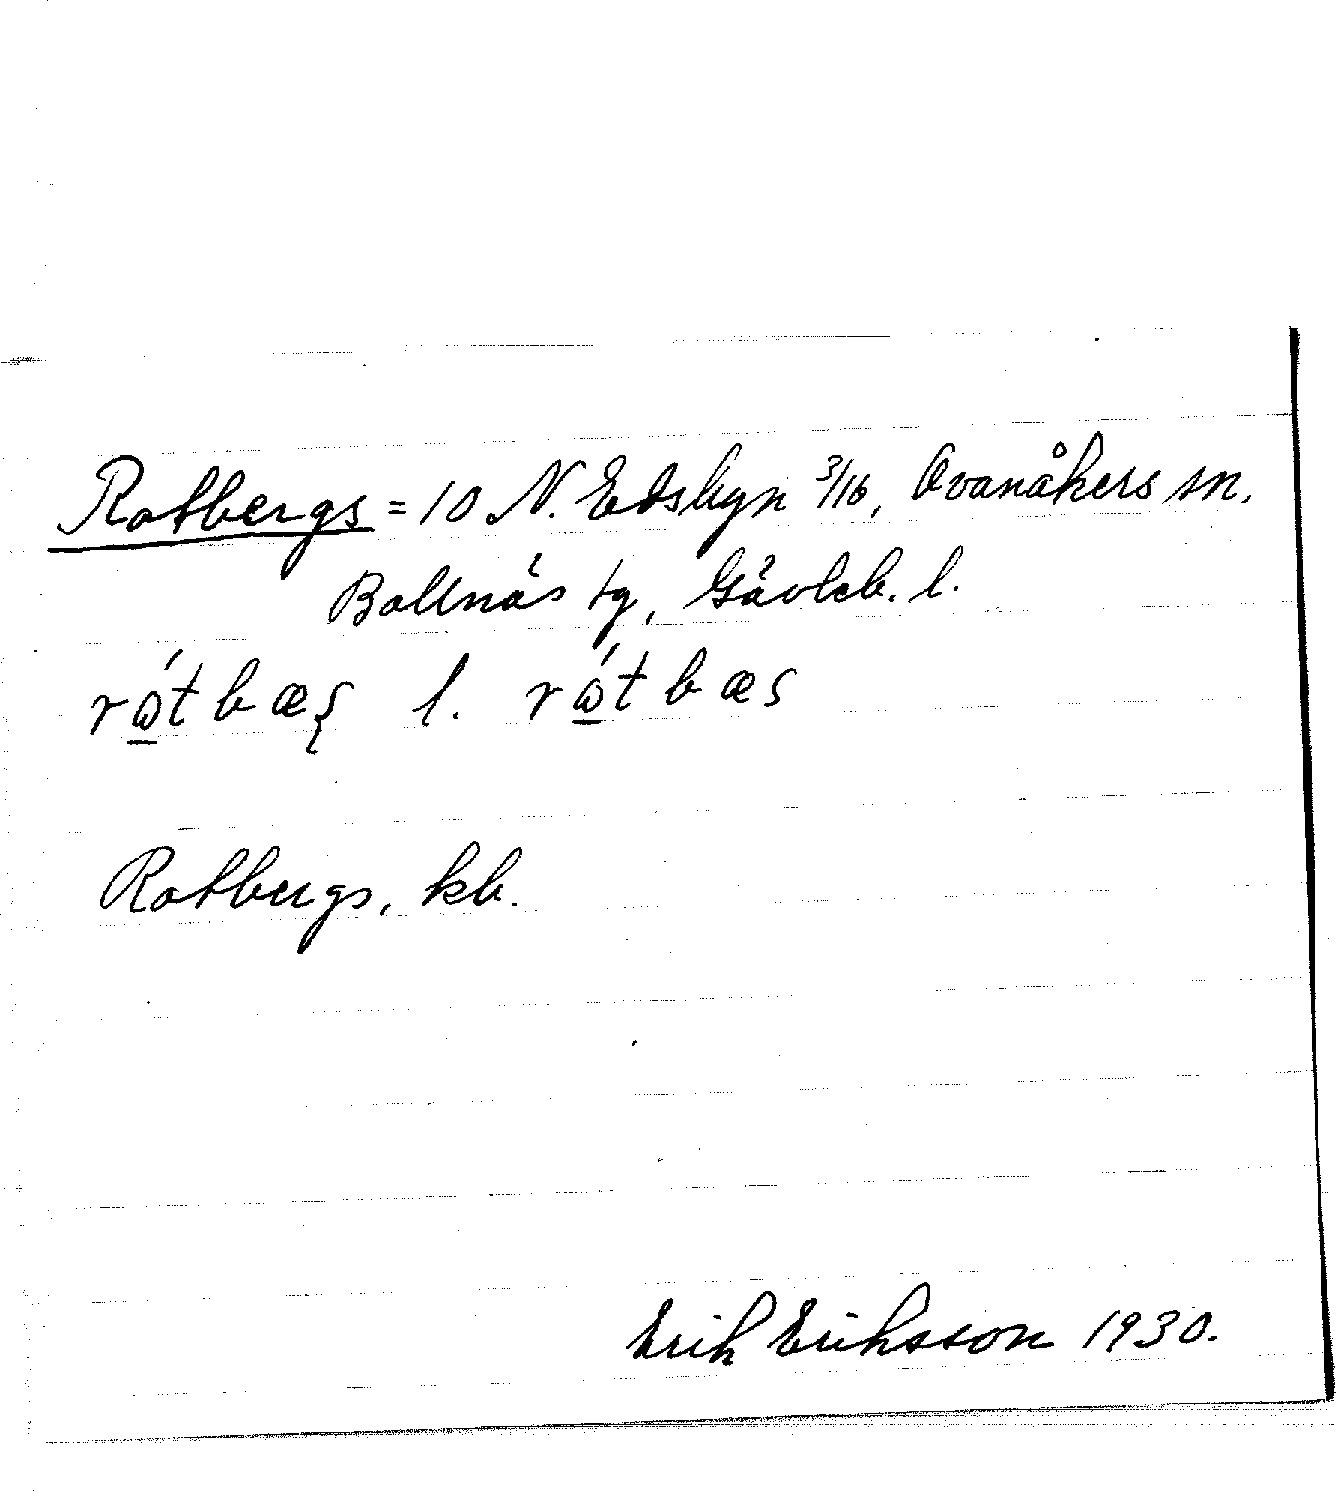 Rotbergs = 10 N. Edsbyn 3/16, Ovanåkers sn.
Bollnäs tg, Gävleb. l.
rώ̲tbæş l. rώ̲tbæs
Rotbergs, kb.
Erik Eriksson 1930.